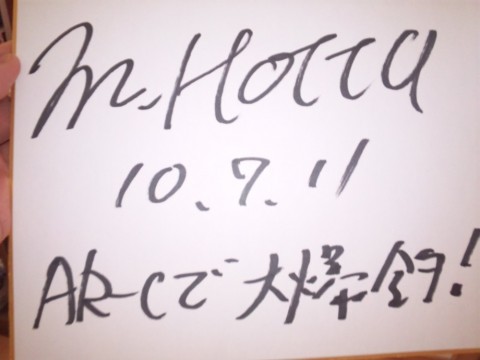 M.Hotta
10.7.11
ARCで大爆釣!